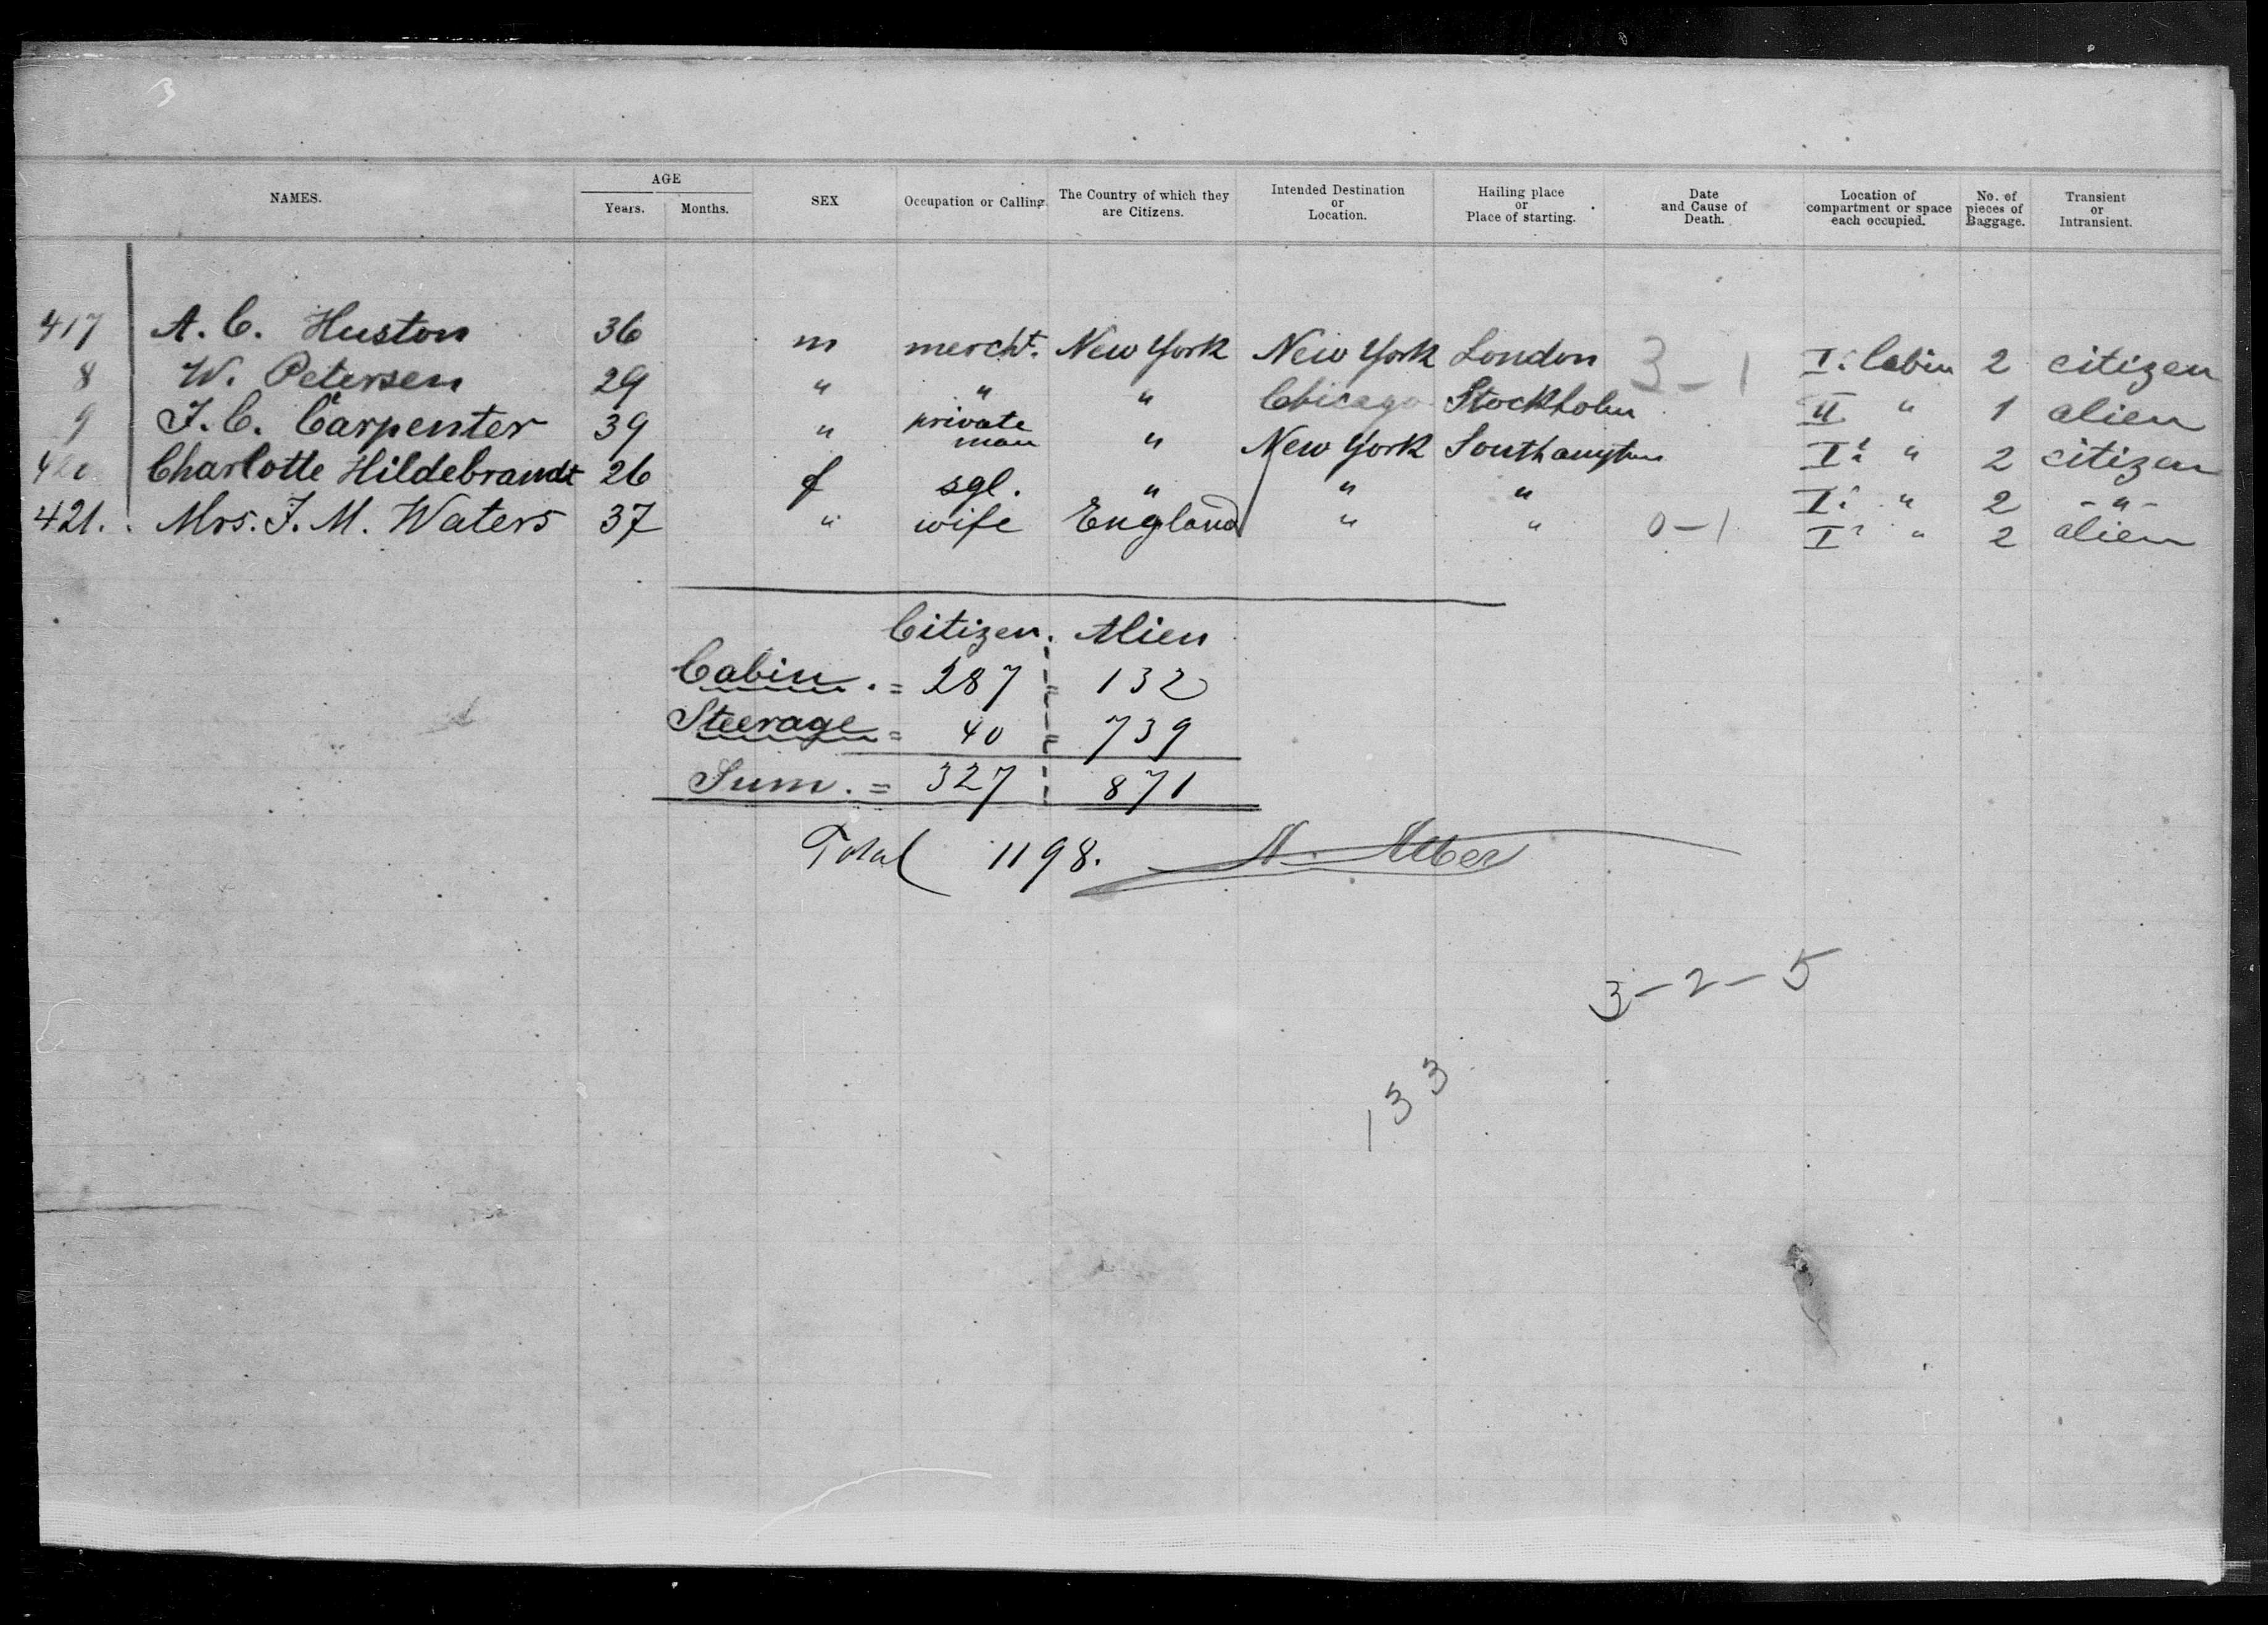 NAMES. AGE SEX Occupation or Calling. The Country of which they are Citizens. Intended Destination or Location. Hailing place or Place of starting. Date and Cause of Death. Location of compartment or space each occupied. No. of pieces of Baggage. Transient or Intransient.
Years. Months.
417 A. C. Huston 36 m mercht. New York New York London 3-1 I. Cabin 2 citizen
8 W. Petersen 29 " " " Chicago Stockholm II " 1 alien
9 J. C. Carpenter 39 " private man " New York Southampton I. " 2 citizen
420 Charlotte Hildebrandt 26 f sgl. " " " I. " 2 -"-
421. Mrs. J. M. Waters 37 " wife England " " 0-1 I. " 2 alien
Citizen. Alien
Cabin. = 287 = 132
Steerage = 40 = 739
Sum. = 327 871
Total 1198.
3-2-5
133